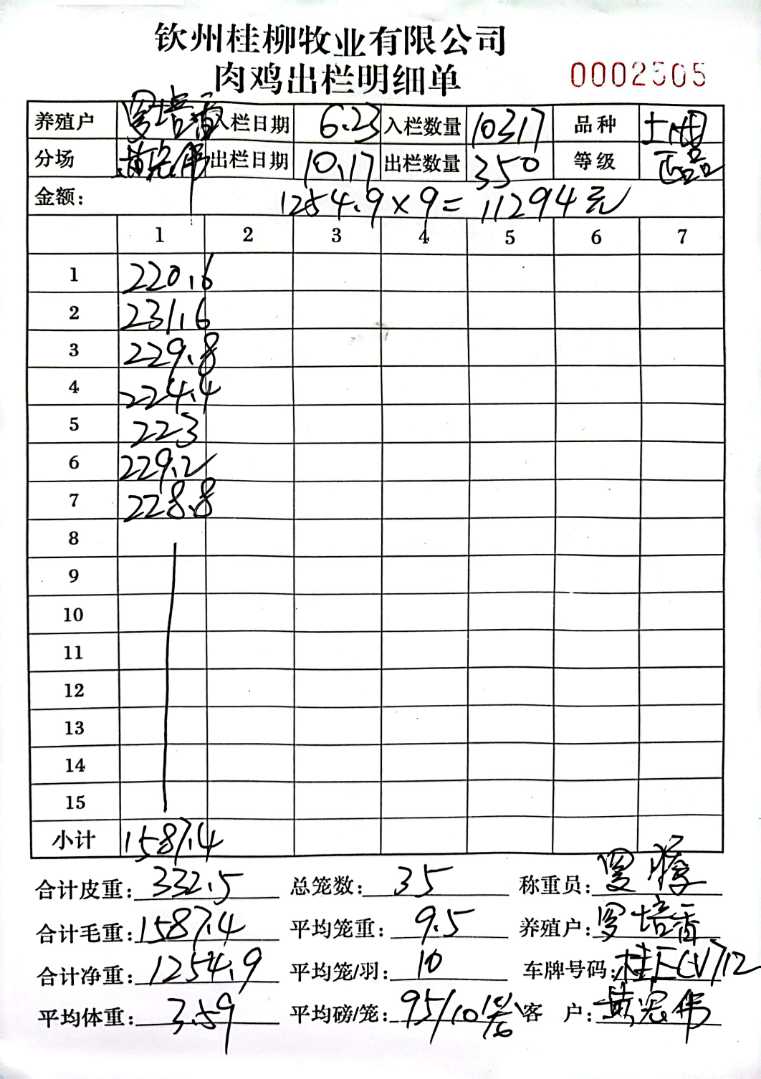 钦州桂柳牧业有限公司
肉鸡出栏明细单 0002505
养殖户 罗培香 入栏日期 6.23 入栏数量 10317 品种 土
分场 黄宏伟 出栏日期 10.17 出栏数量 350 等级
金额: 1254.9×9=11294元
1 2 3 4 5 6 7
1 220.6
2 231.6
3 229.8
4 224.4
5 223
6 229.2
7 228.8
8
9
10
11
12
13
14
15
小计 1587.4
合计皮重: 332.5 总笼数: 35 称重员: 罗
合计毛重: 1587.4 平均笼重: 9.5 养殖户: 罗培香
合计净重: 1254.9 平均笼/羽: 10 车牌号码: 桂
平均体重: 3.59 平均磅/笼: 95/10 客户: 黄宏伟